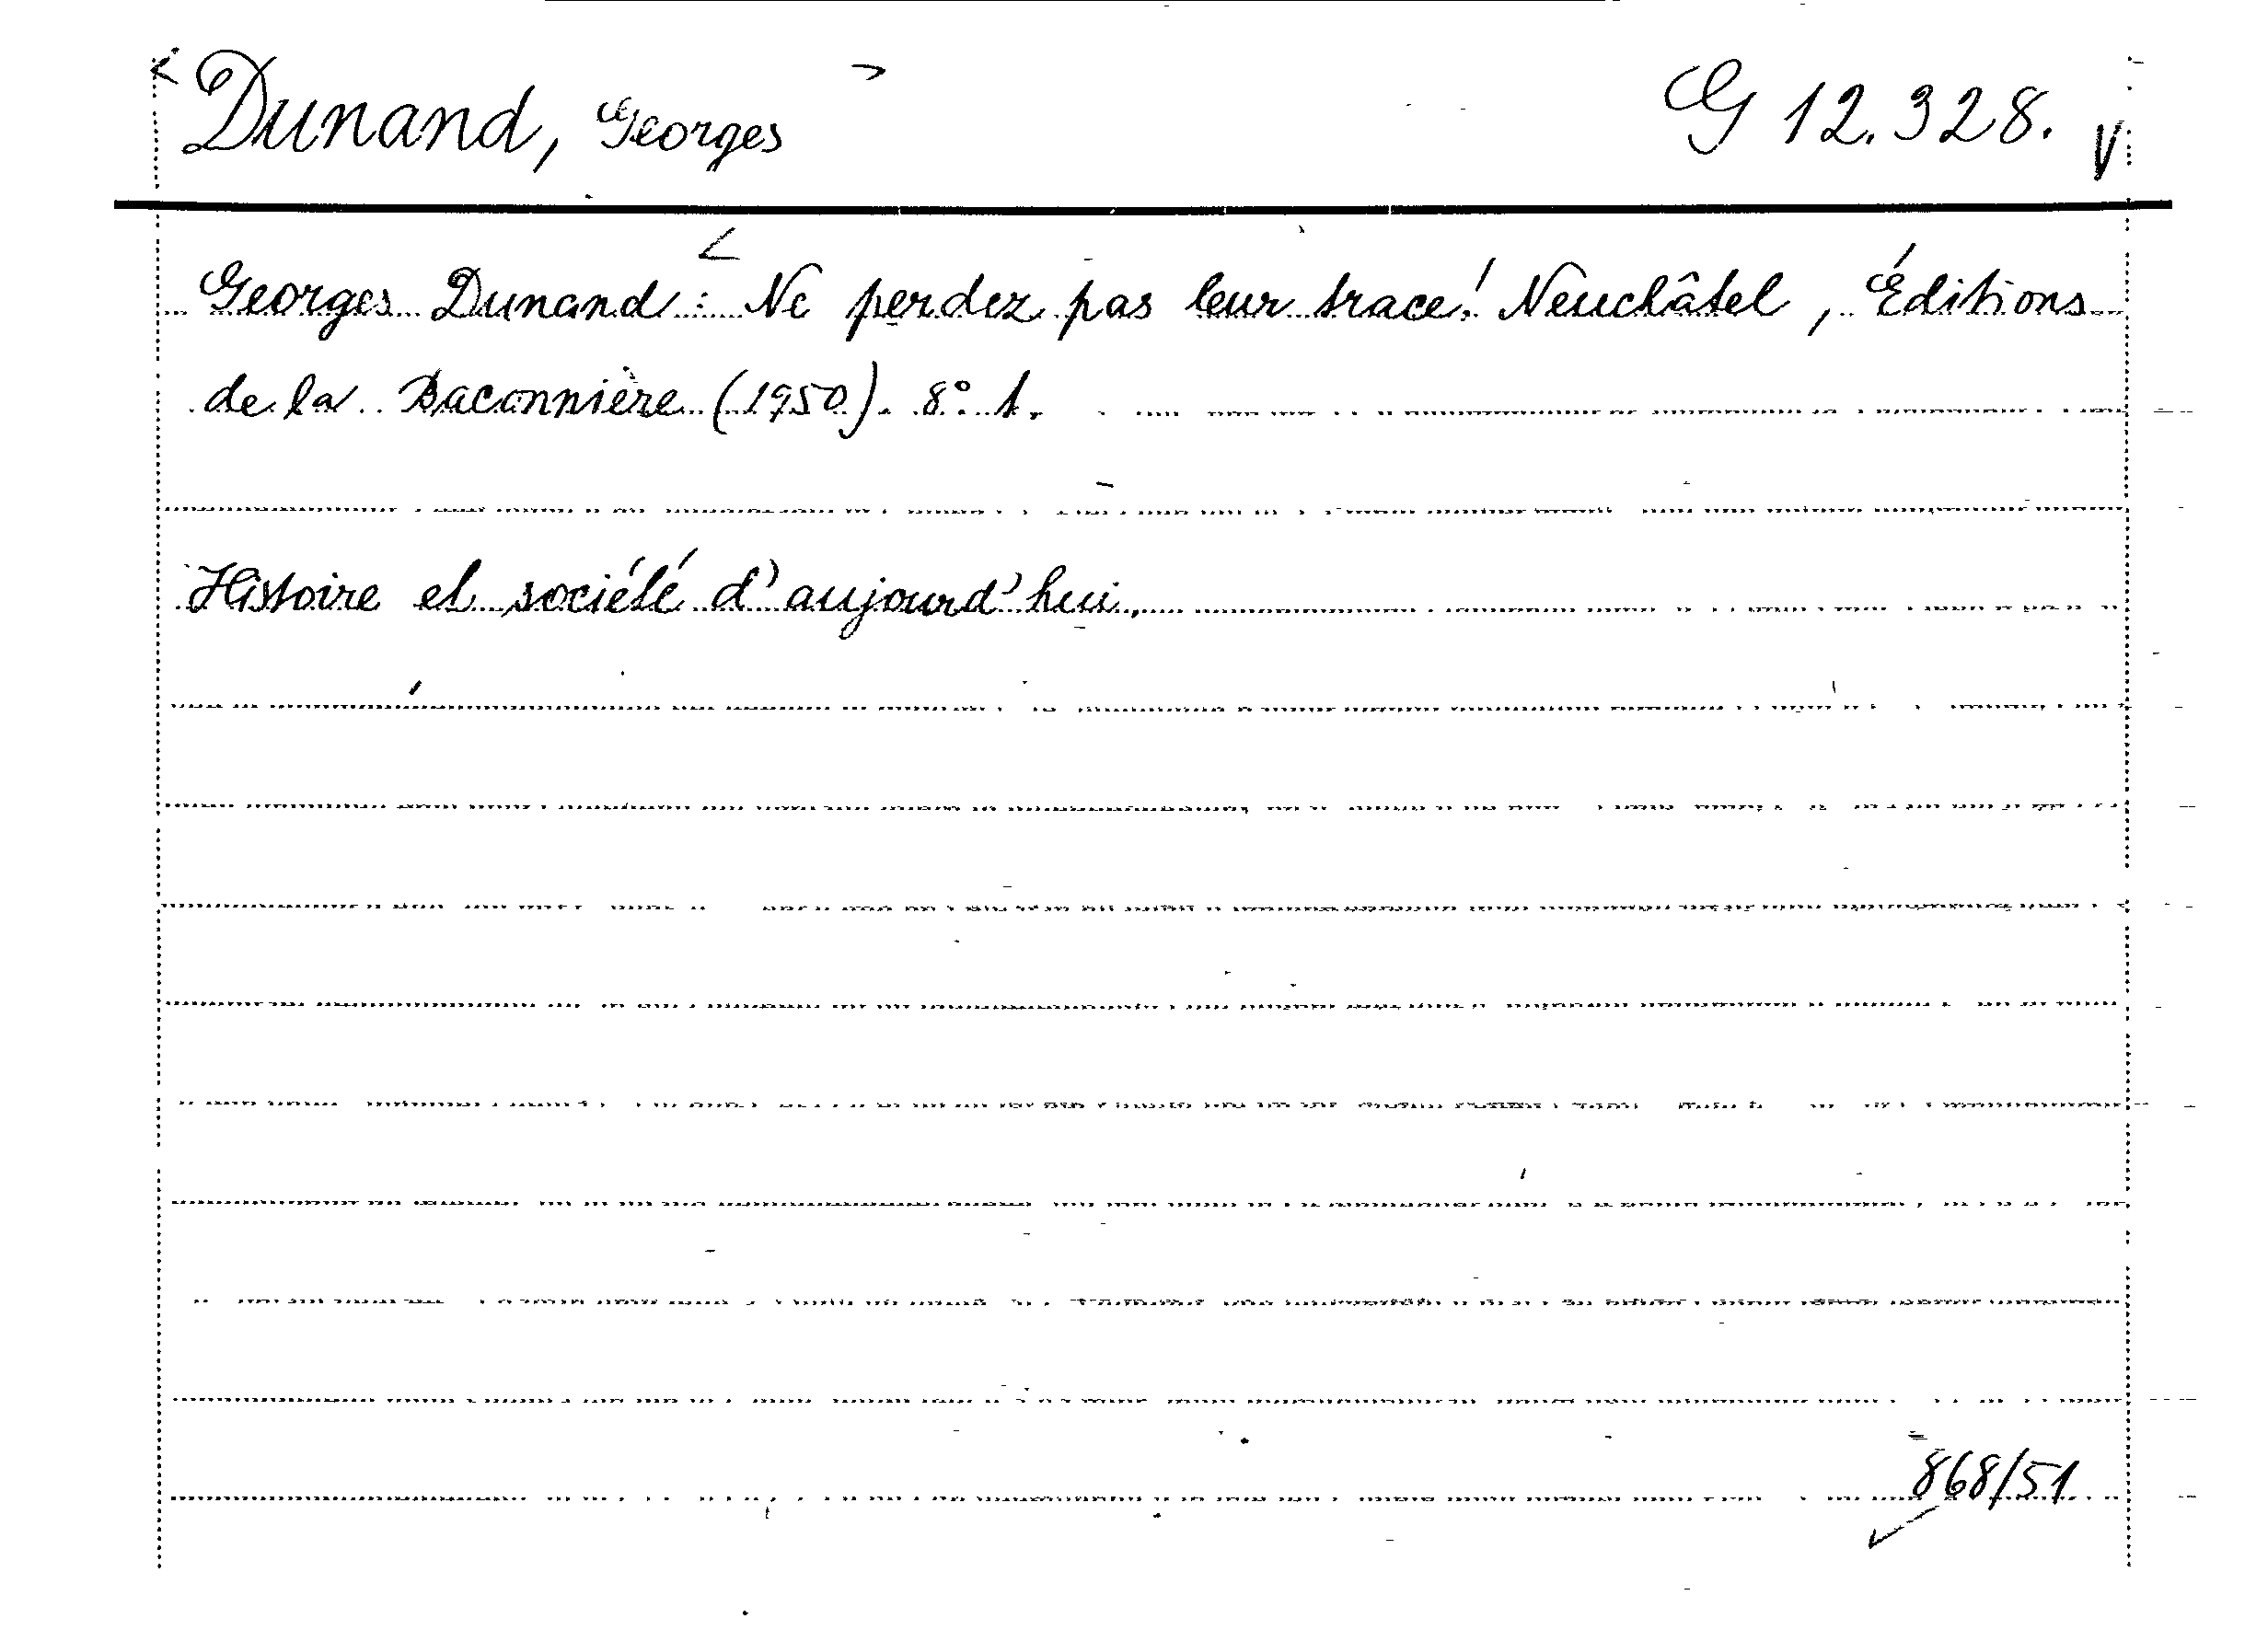 Dunand, Georges G 12.328.
Georges Dunand: Ne perdez pas leur trace! Neuchâtel, Éditions
de la Baconnière (1950). 8° 1.
Histoire et société d'aujourd'hui.
868/51